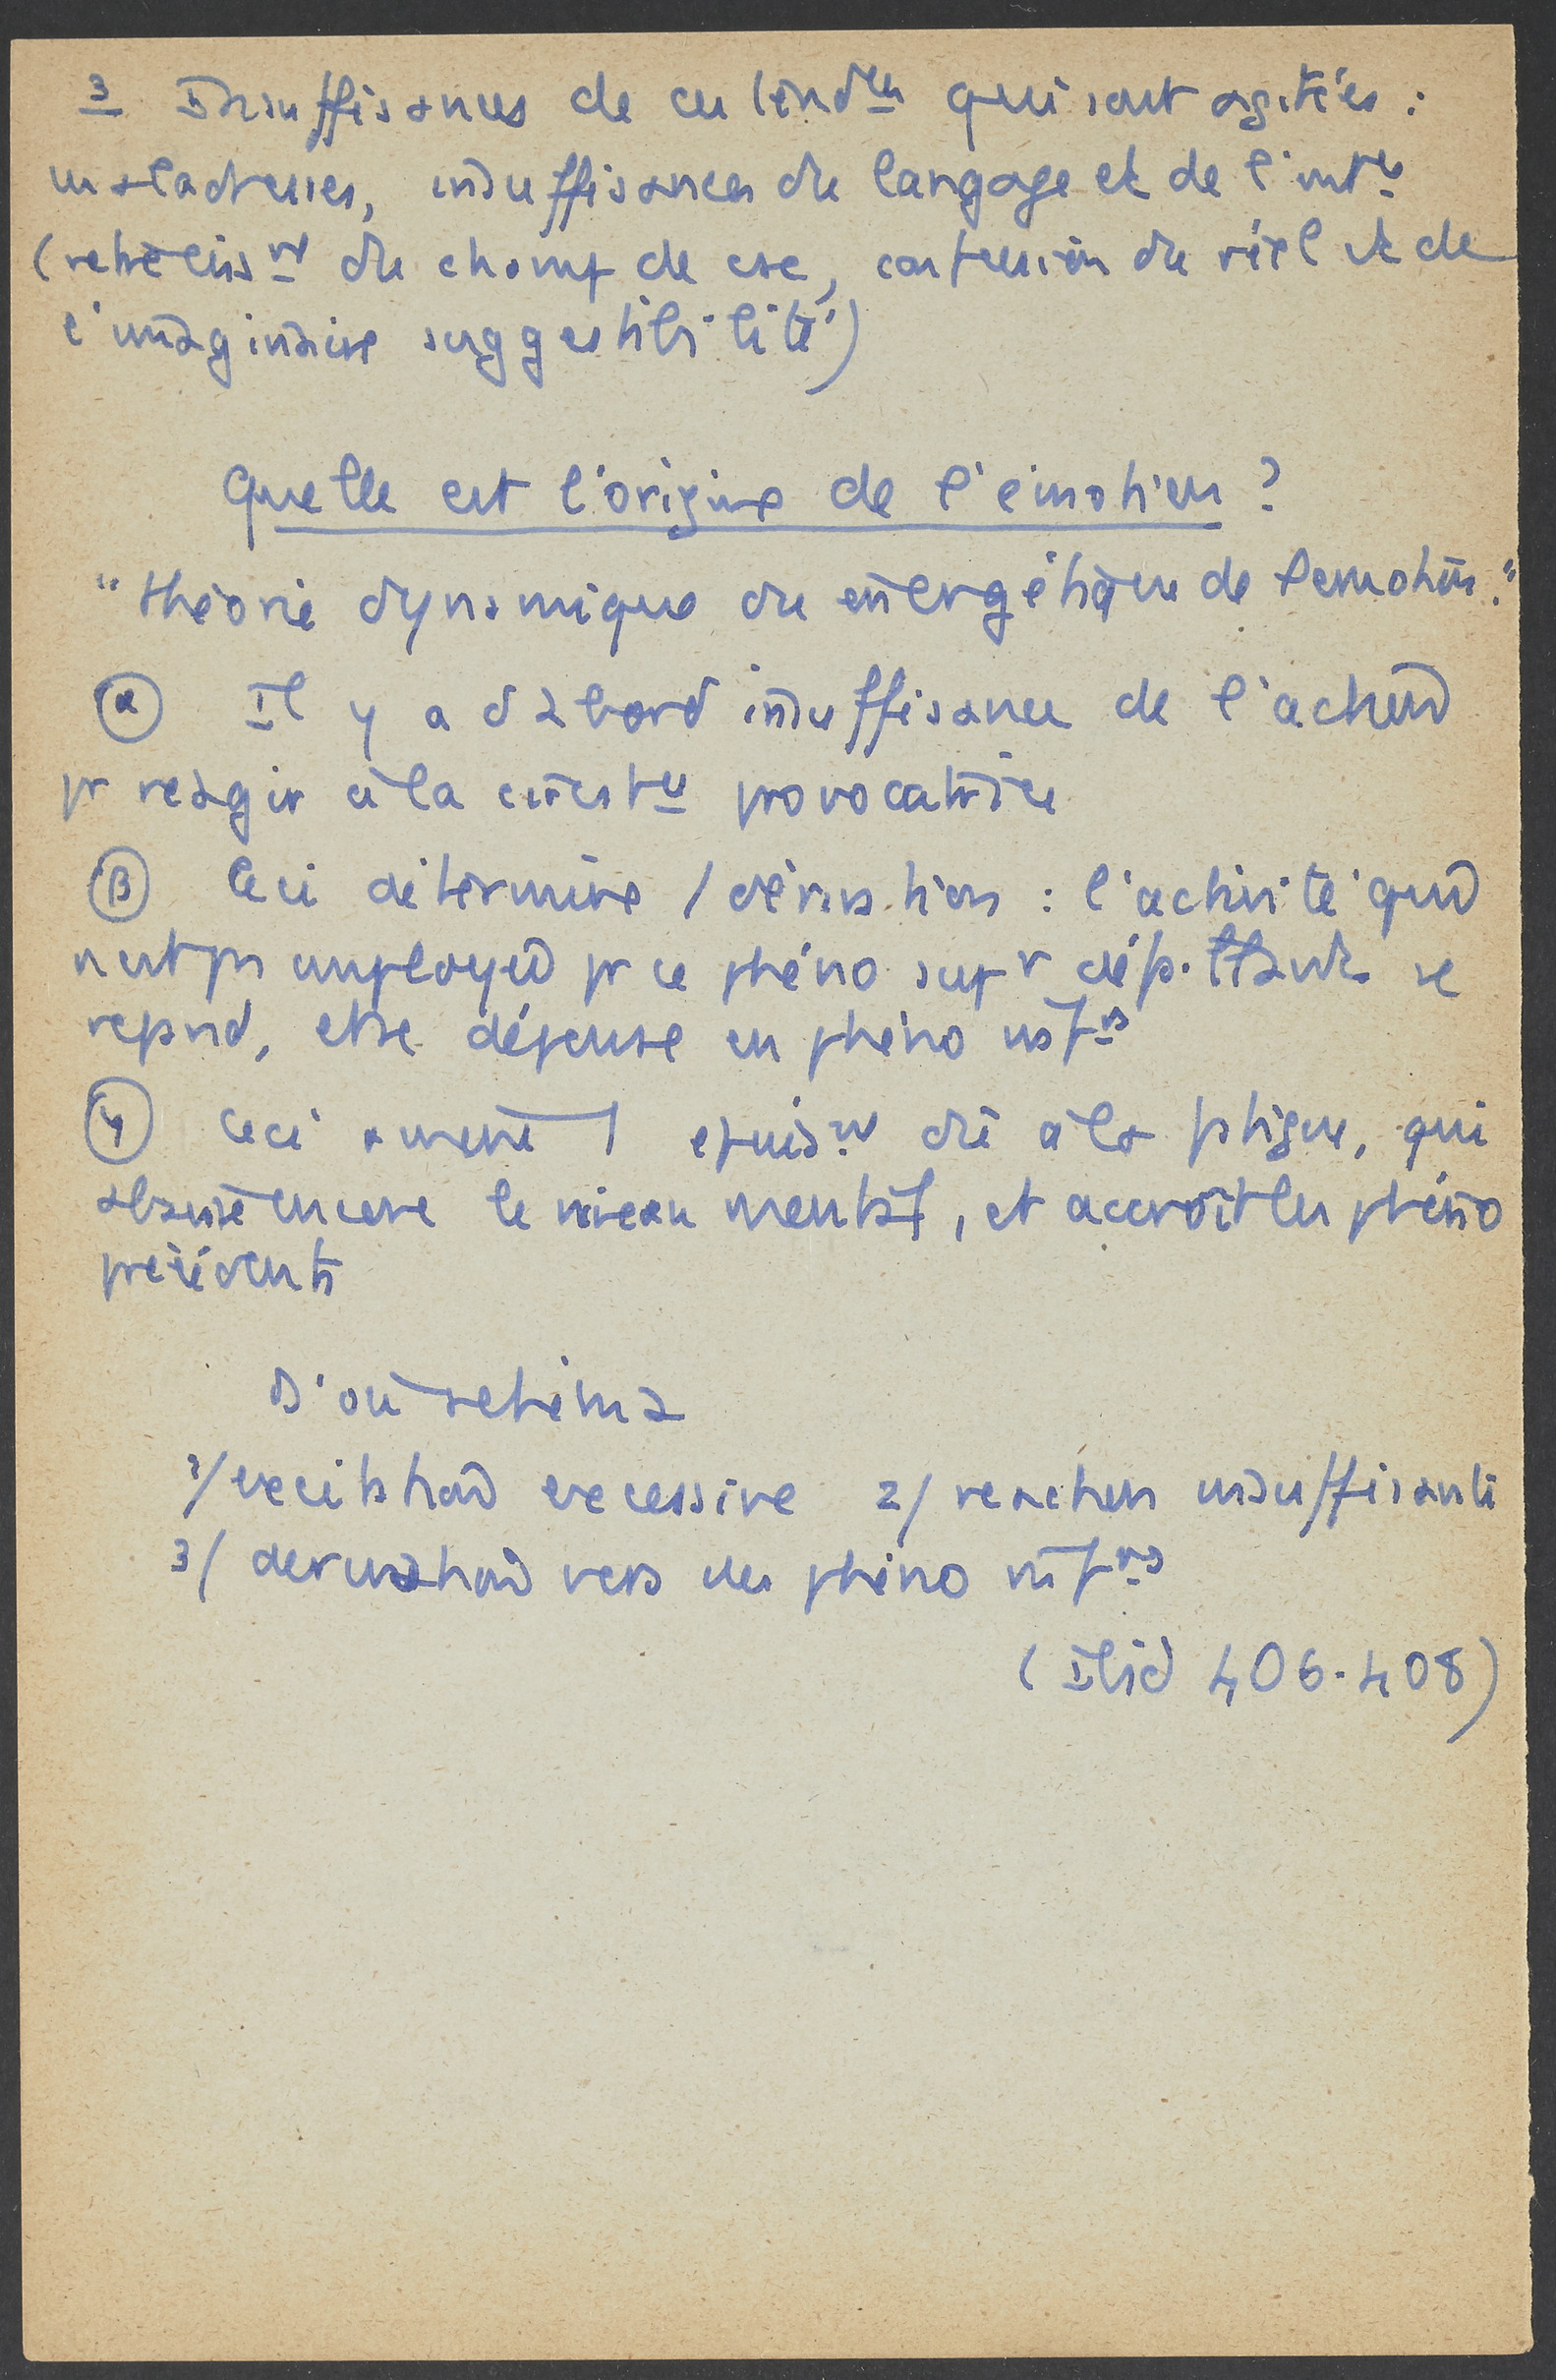 3 Insuffisances de ces tend^ces qui sont agitées :
maladresses, insuffisances du langage et de l'int^ce
(rétréciss^nt du champ de csce, confusion du réel et de
l'imaginaire suggestibilité)
Quelle est l'origine de l'émotion ?
"théorie dynamique ou énergétique de l'émotion."
α Il y a d'abord insuffisance de l'action
pr réagir à la circst^ce provocatrice
β Ceci détermine / dérivation : l'activité qui
n'est pas employée pr ce phéno sup^r se
répand, et se dépense en phéno inf^rs
γ Ceci amène 1 épuis^nt dû à la fatigue, qui
abaisse encore le niveau mental, et accroît les phéno
précédents
D'où schéma
1/ excitation excessive 2/ réaction insuffisante
3/ dérivation vers des phéno inf^rs
(Ibid 406-408)